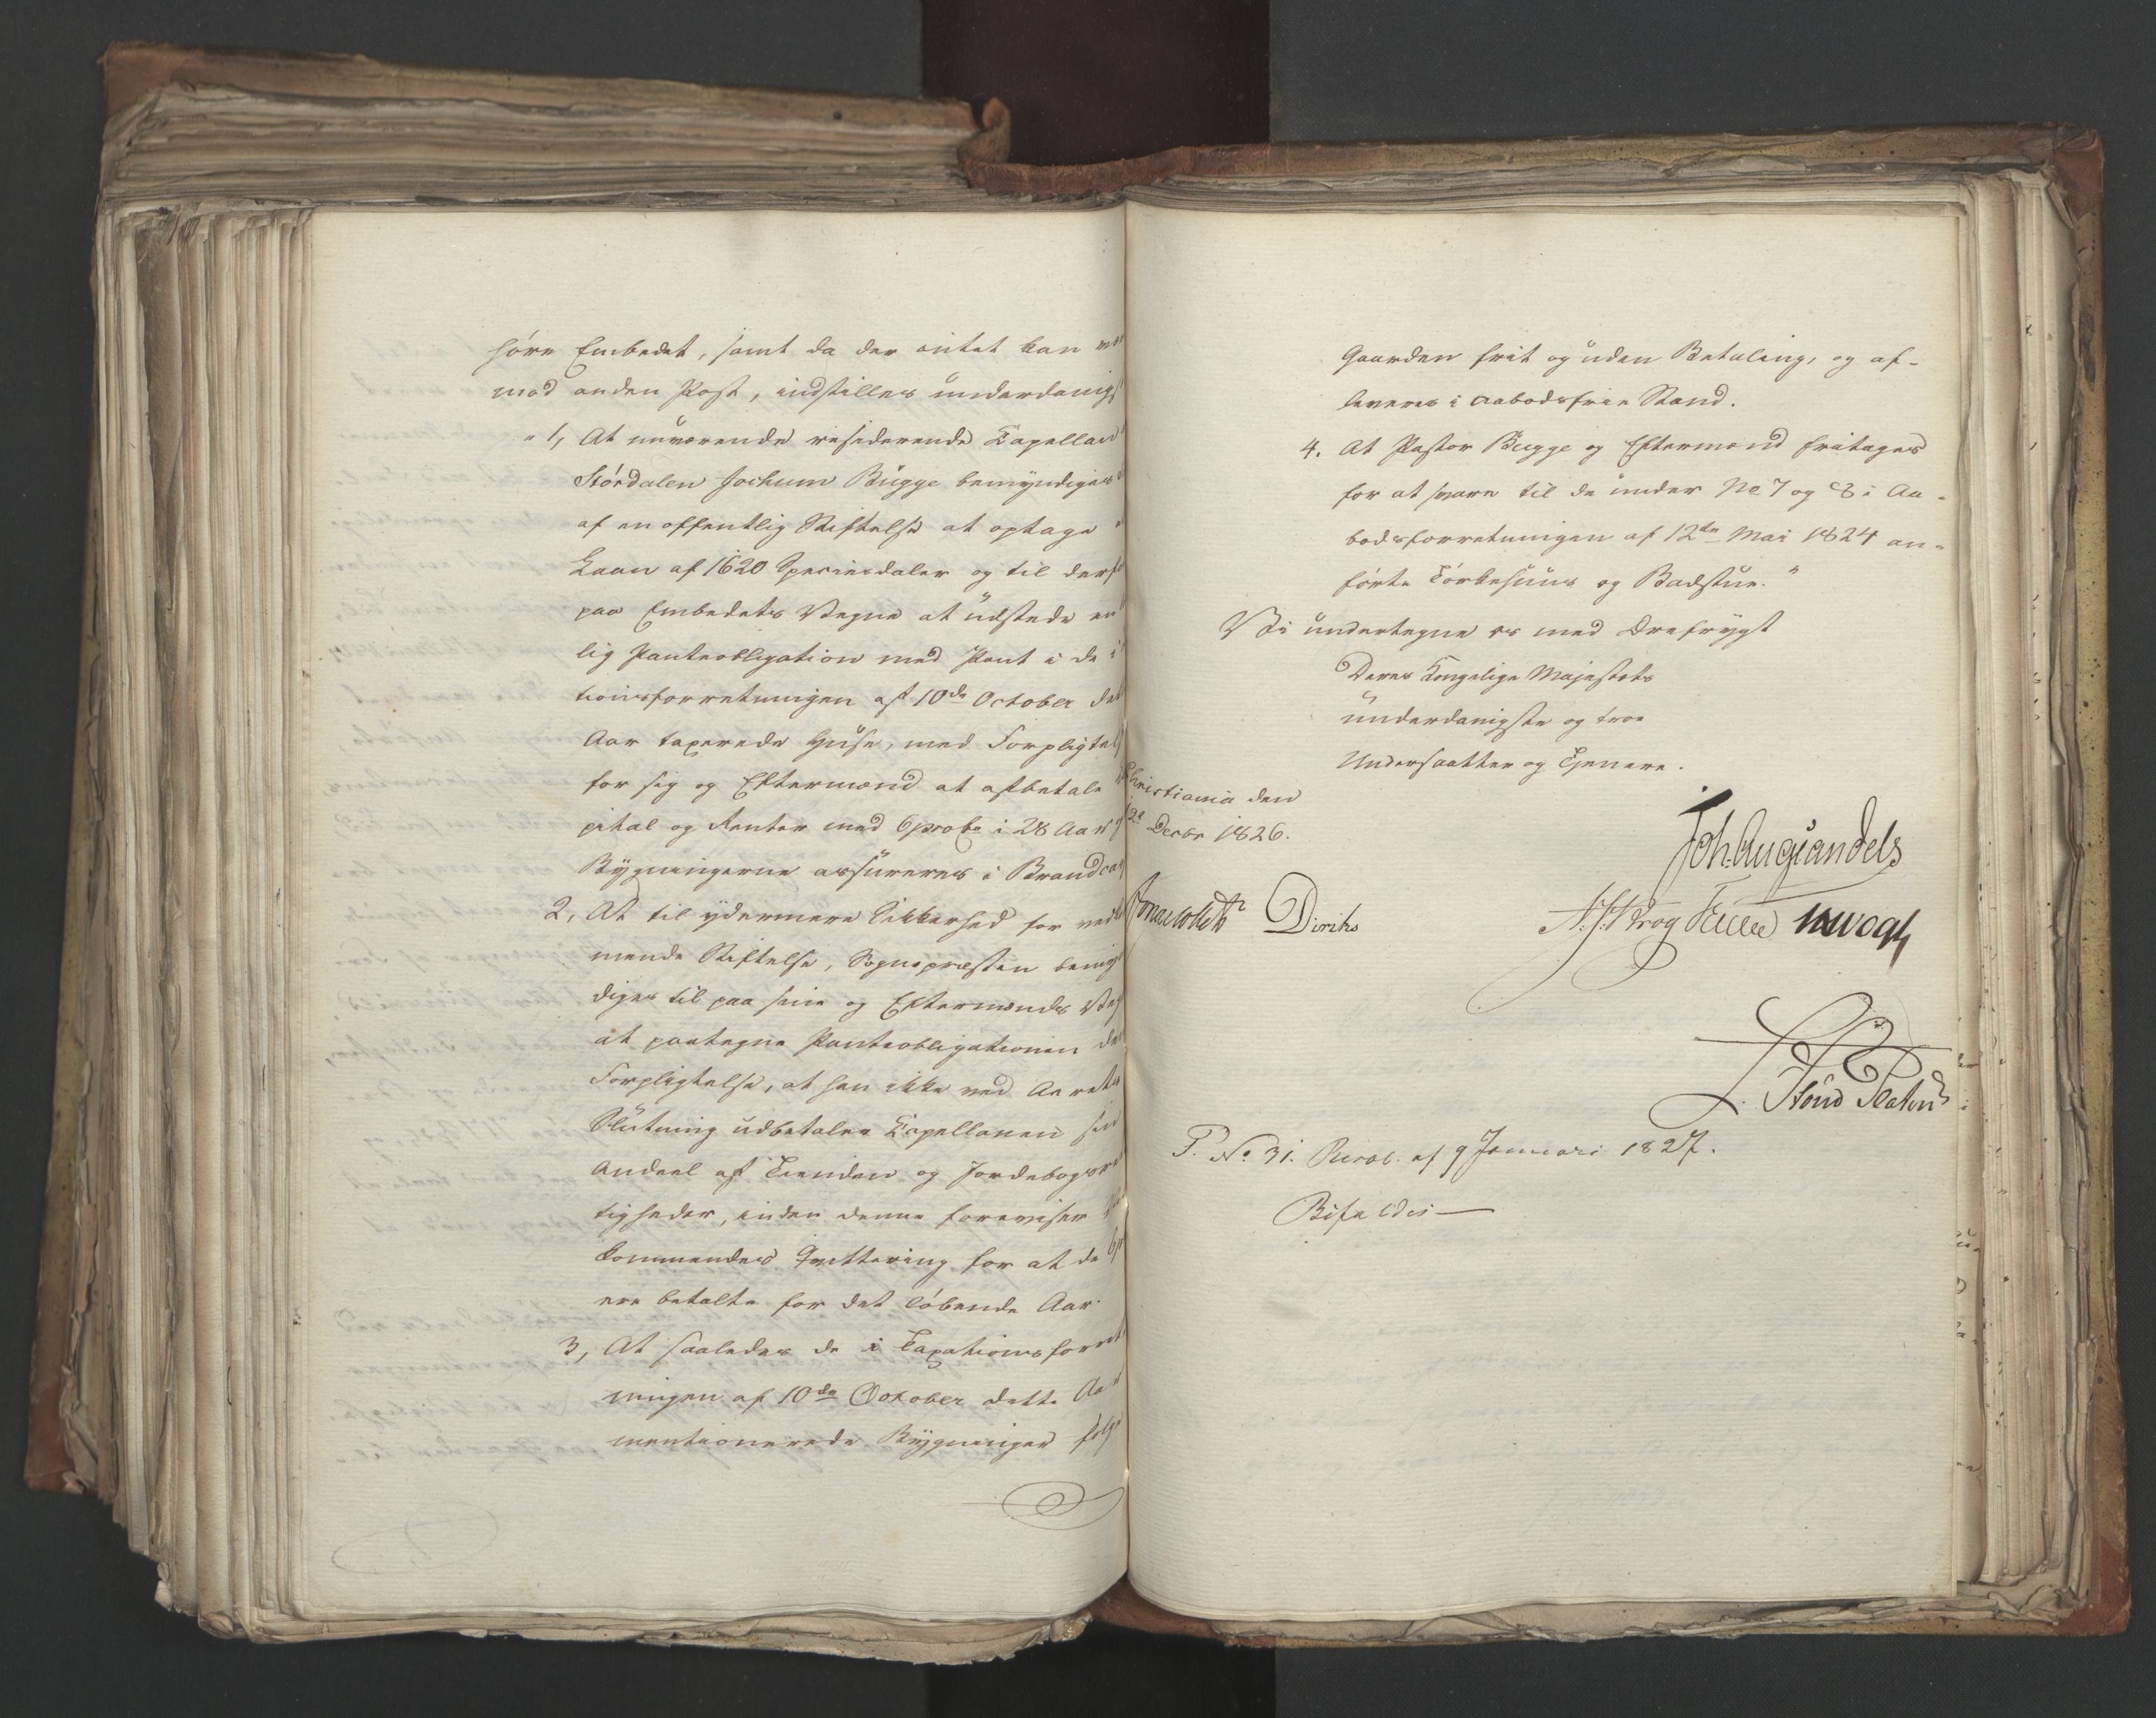 høre Embedet, samt da der intet kan
mod anden Post, indstilles underdanigst
"1, At nuværende residerende Capellan
Størdalen Jochum Bugge bemyndiges
af en offentlig Stiftelse at optage
Laan af 1620 Speciesdaler og til
paa Embedets Vegne at udstede
lig Panteobligation med Pant i de
tionsforretningen af 10de October
Aar taxerede Huse, med Forpligtelse
for sig og Eftermænd at afbetale
pital og Renter med 6 proCto i 28 Aar
Bygningerne assureres i Brand
2, At til ydermere Sikkerhed for
mende Stiftelse, Sognepræsten bemyn
diges til paa sine og Eftermænds
at paategne Panteobligationen
Forpligtelse, at han ikke ved Aarets
Slutning udbetaler Capellanen sin
Andeel af Tienden og Jordebogs
tigheder, inden denne foreviser
kommendes Qvittering for at de
ere betalte for det løbende Aar.
3, At saaledes de i Taxationsforret
ningen af 10de October dette Aar
mentionerede Bygninger følge
Gaarden frit og uden Betaling, og af-
leveres i aabodsfrie Stand.
4. At Pastor Bugge og Eftermænd fritages
for at svare til de under No 7 og 8 i Aa-
bodsforretningen af 12te Mai 1824 an-
førte Tørkehuus og Badstue."
Vi undertegne os med Ærefrygt
Deres Kongelige Majestæts
underdanigste og troe
Undersaatter og Tjenere.
Christiania den
Decbr 1826.
Joh. Aug Sandels
Diriks
Krog
P. No 31. Resol. af 9 Januari 1827.
Bifaldes